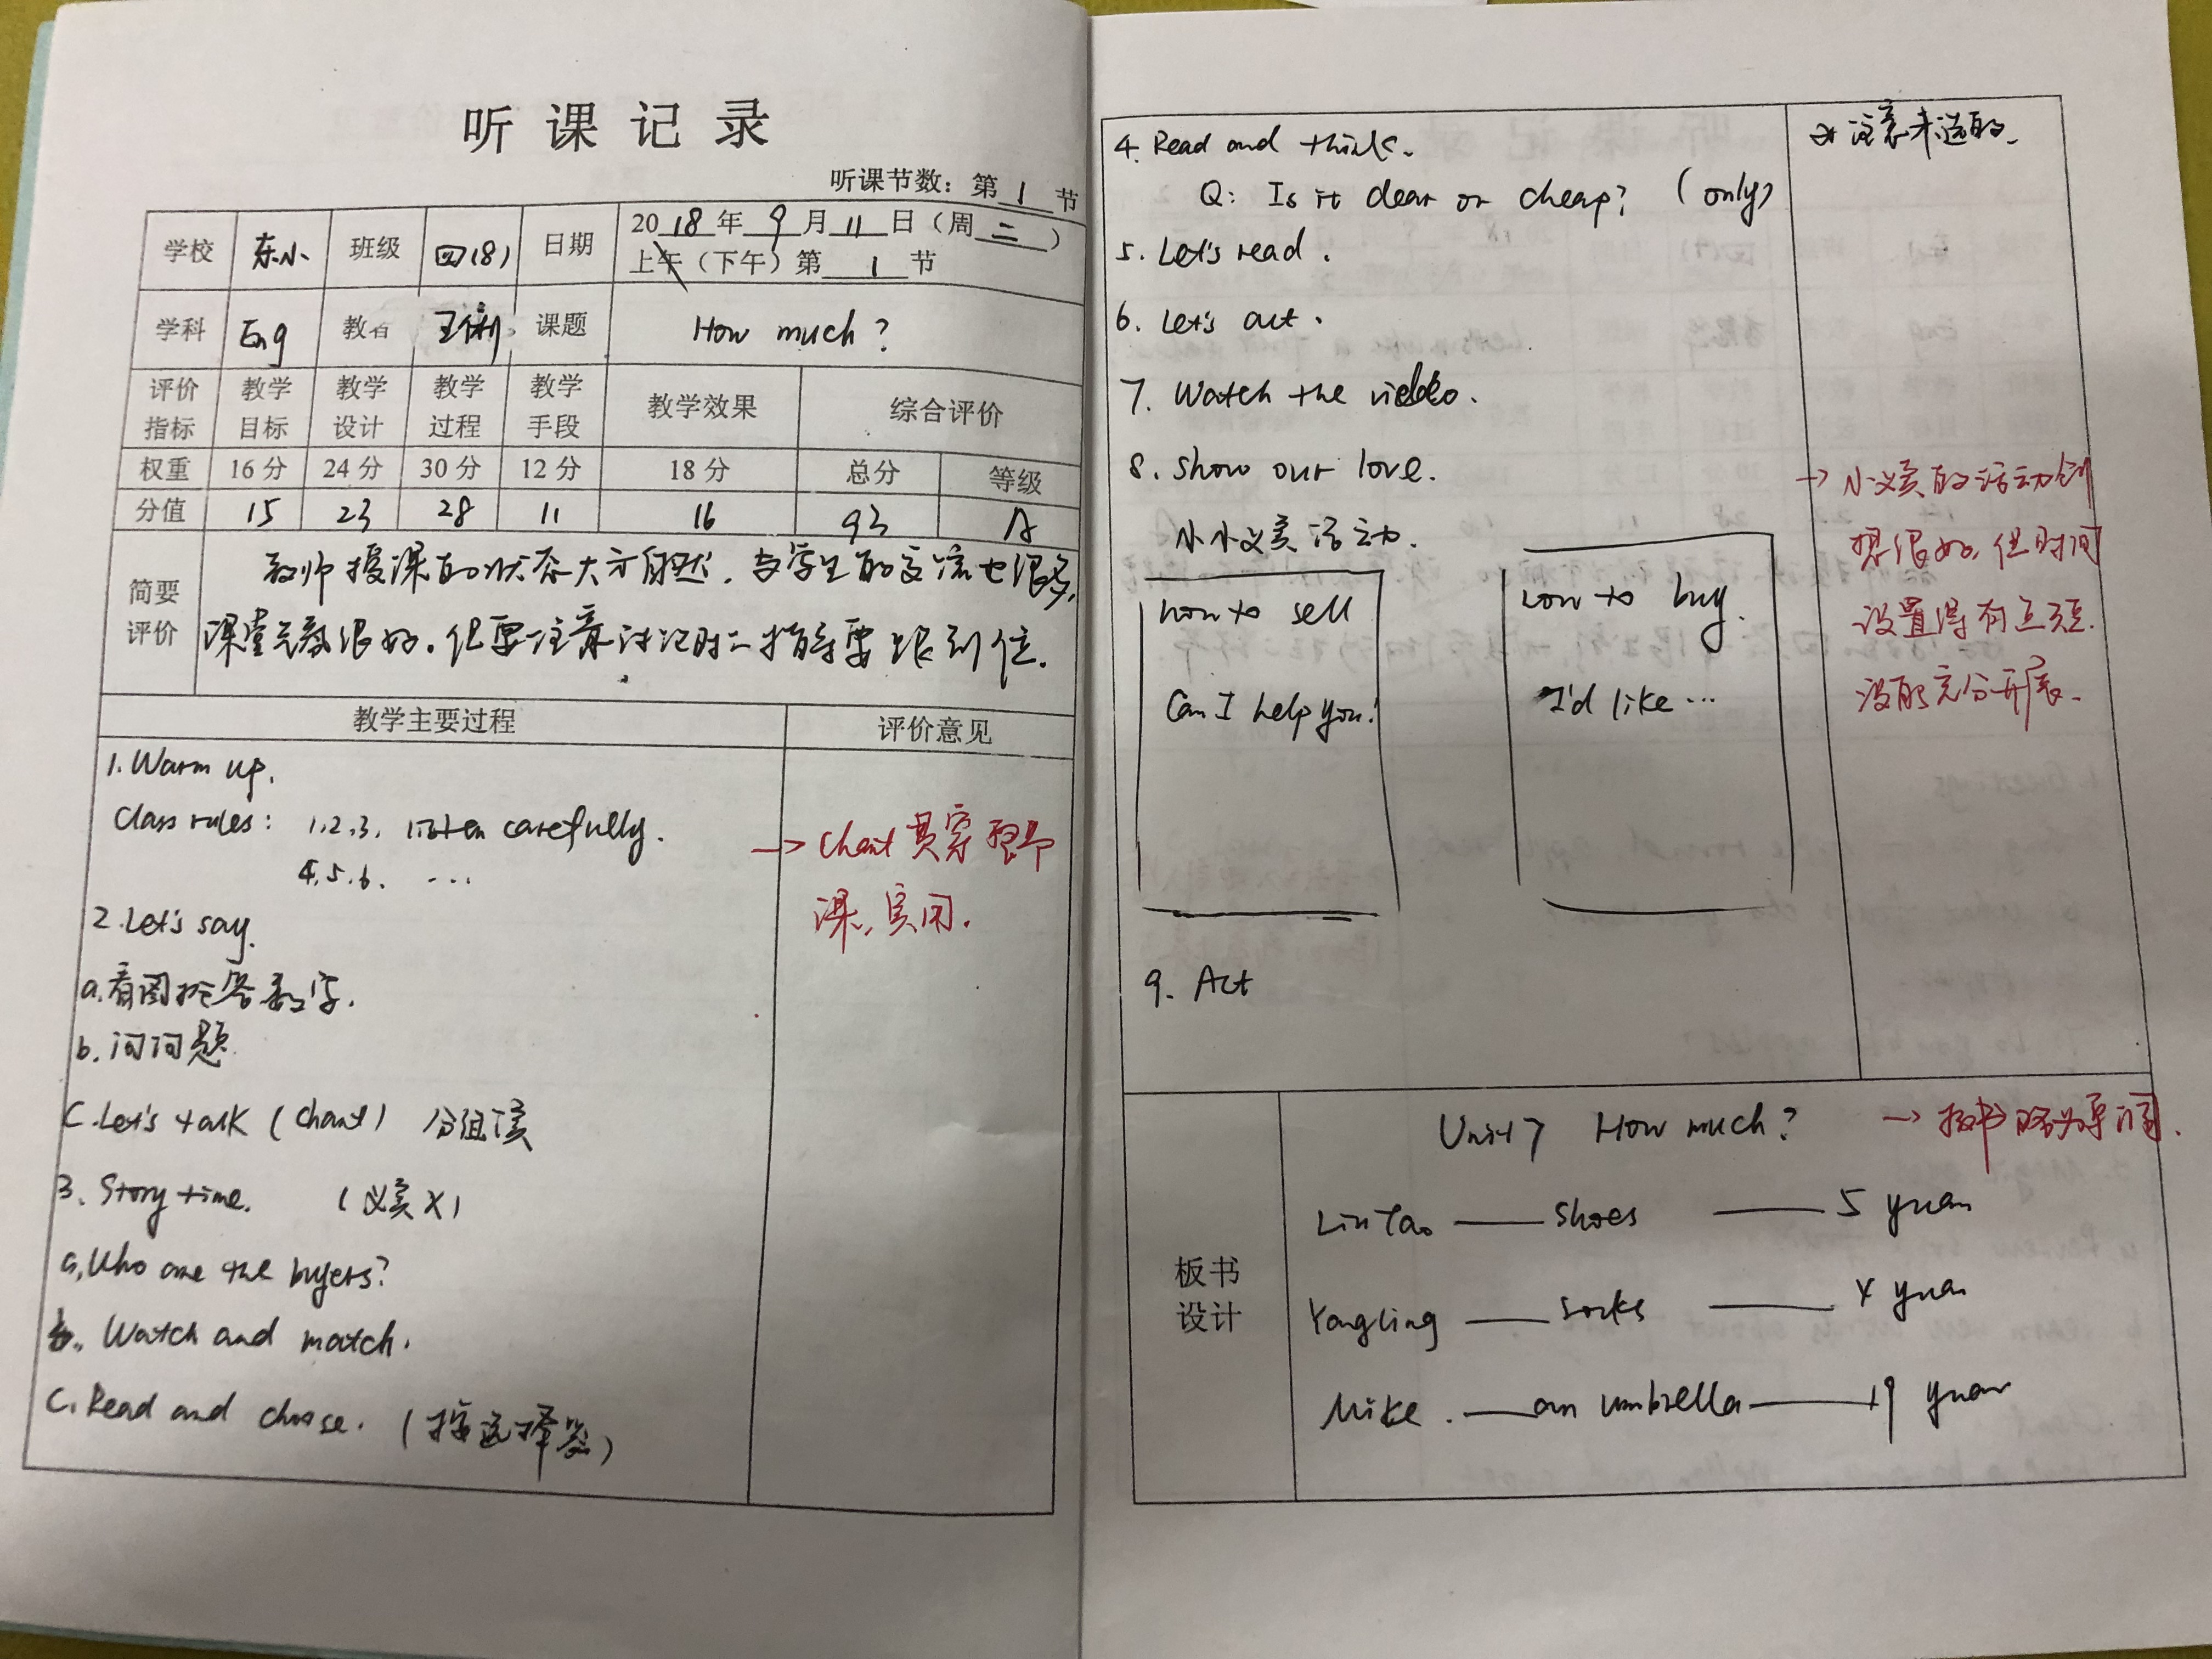 听课记录
听课节数：第 1 节
学校 东小 班级 四(8) 日期 2018年 9月 11日（周二）
上午（下午）第 1 节
学科 Eng 教者 课题 How much?
评价指标 教学目标 教学设计 教学过程 教学手段 教学效果 综合评价
权重 16分 24分 30分 12分 18分 总分 等级
分值 15 23 28 11 16 93 A
简要评价
教师授课的状态大方自然，与学生的交流也很多，
课堂气氛很好。但要注意讨论时，指导要跟到位。
教学主要过程 评价意见
1. Warm up.
Class rules: 1,2,3, listen carefully.
4,5,6. ...
→ Chant 贯穿整节
课，实用.
2. Let's say.
a. 看图抢答数字.
b. 问问题
C. Let's talk (chant) 分组读
3. Story time. (义卖X)
a, Who are the buyers?
b. Watch and match.
C. Read and choose. (按选择器)
4. Read and think.
注意未选的.
Q: Is it dear or cheap? (only)
5. Let's read.
6. Let's act.
7. Watch the video.
8. Show our love.
小小义卖活动.
→ 小义卖的活动创
想很好，但时间
设置得有点短.
没能充分开展.
how to sell
Can I help you?
how to buy.
I'd like ...
9. Act
板书设计
Unit 7 How much? → 板书略为单调.
Liu Tao —— shoes —— 5 yuan
Yang Ling —— socks —— 4 yuan
Mike. —— an umbrella —— 19 yuan